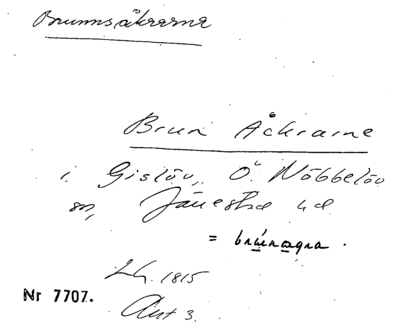 Brunnsåkrarna
Brun Åckrarne
i Gislöv, Ö. Nöbbelöv
sn, Järrestad hd
= brúnagra.
LG. 1815
Nr 7707.
Akt 3.